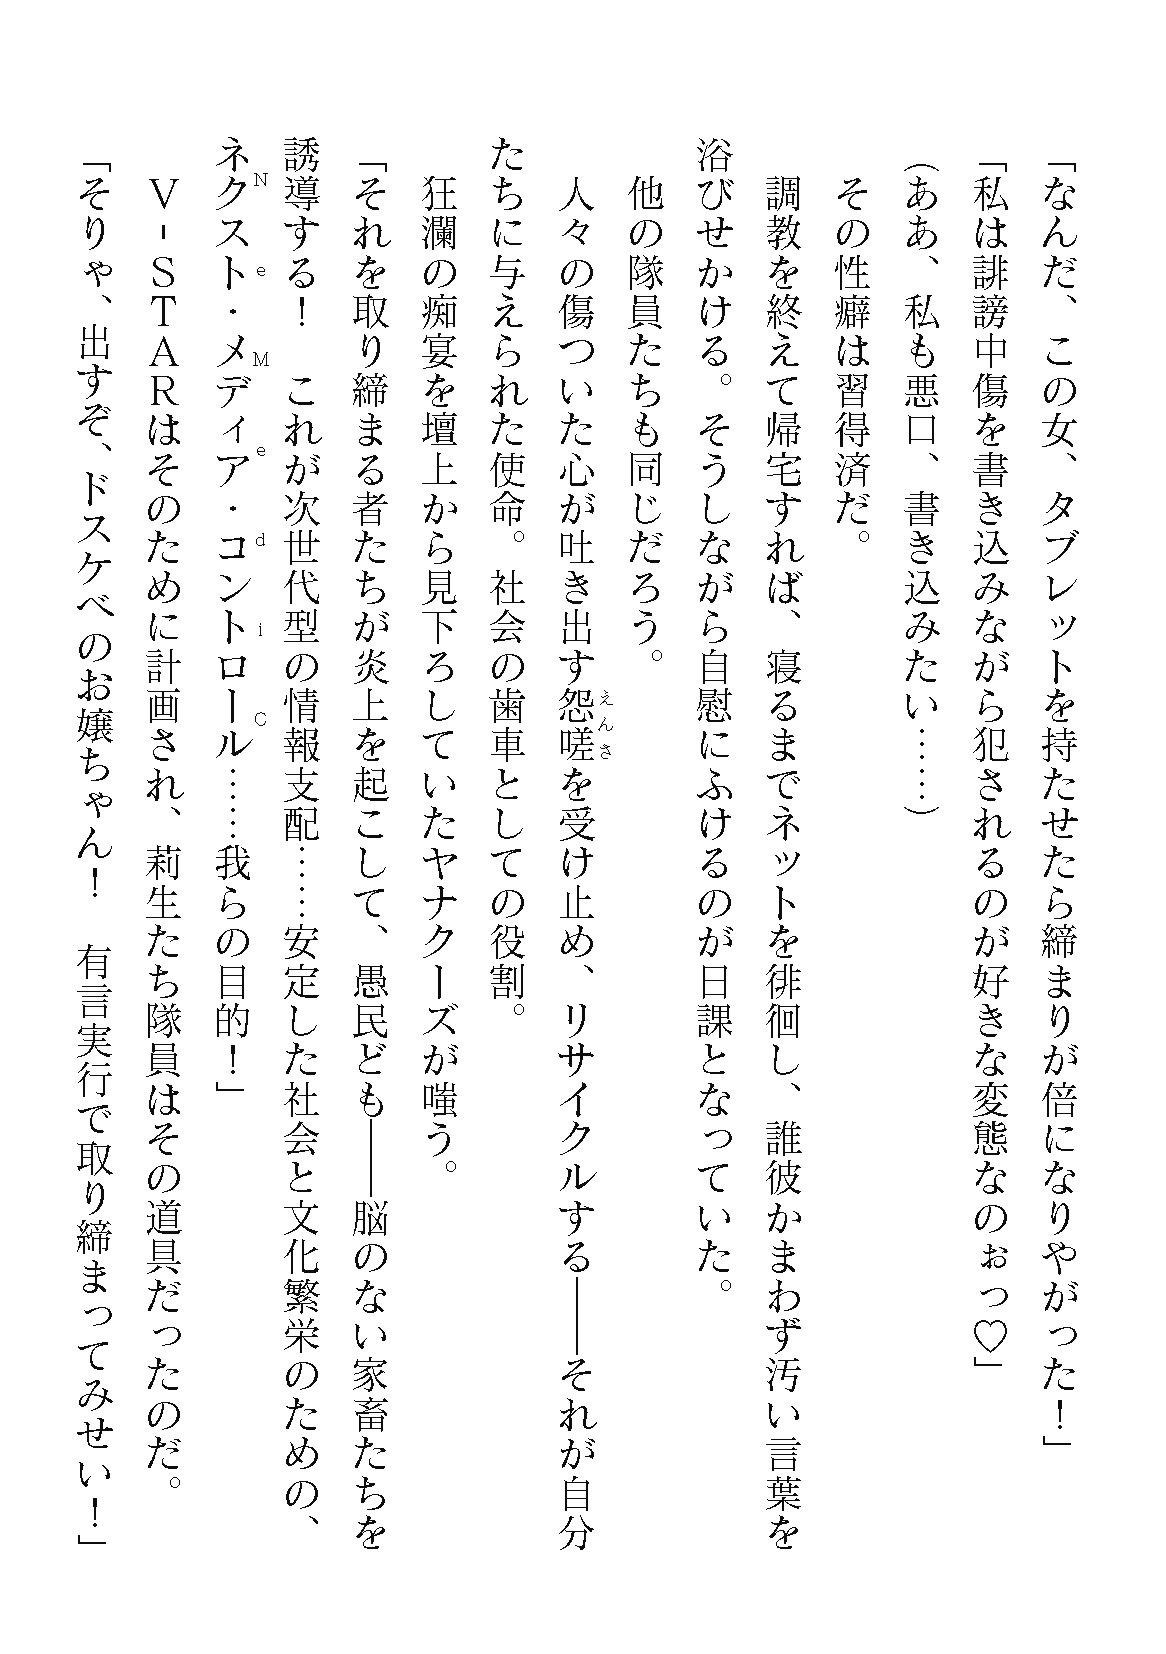 「なんだ、この女、タブレットを持たせたら締まりが倍になりやがった！」
「私は誹謗中傷を書き込みながら犯されるのが好きな変態なのぉっ♡」
（ああ、私も悪口、書き込みたい……）
　その性癖は習得済だ。
　調教を終えて帰宅すれば、寝るまでネットを徘徊し、誰彼かまわず汚い言葉を
浴びせかける。そうしながら自慰にふけるのが日課となっていた。
　他の隊員たちも同じだろう。
　人々の傷ついた心が吐き出す怨嗟えんさを受け止め、リサイクルする――それが自分
たちに与えられた使命。社会の歯車としての役割。
　狂瀾の痴宴を壇上から見下ろしていたヤナクーズが嗤う。
「それを取り締まる者たちが炎上を起こして、愚民ども――脳のない家畜たちを
誘導する！　これが次世代型の情報支配……安定した社会と文化繁栄のための、
ネクスト・メディア・コントロールNeMediC……我らの目的！」
　Ｖ-ＳＴＡＲはそのために計画され、莉生たち隊員はその道具だったのだ。
「そりゃ、出すぞ、ドスケベのお嬢ちゃん！　有言実行で取り締まってみせい！」